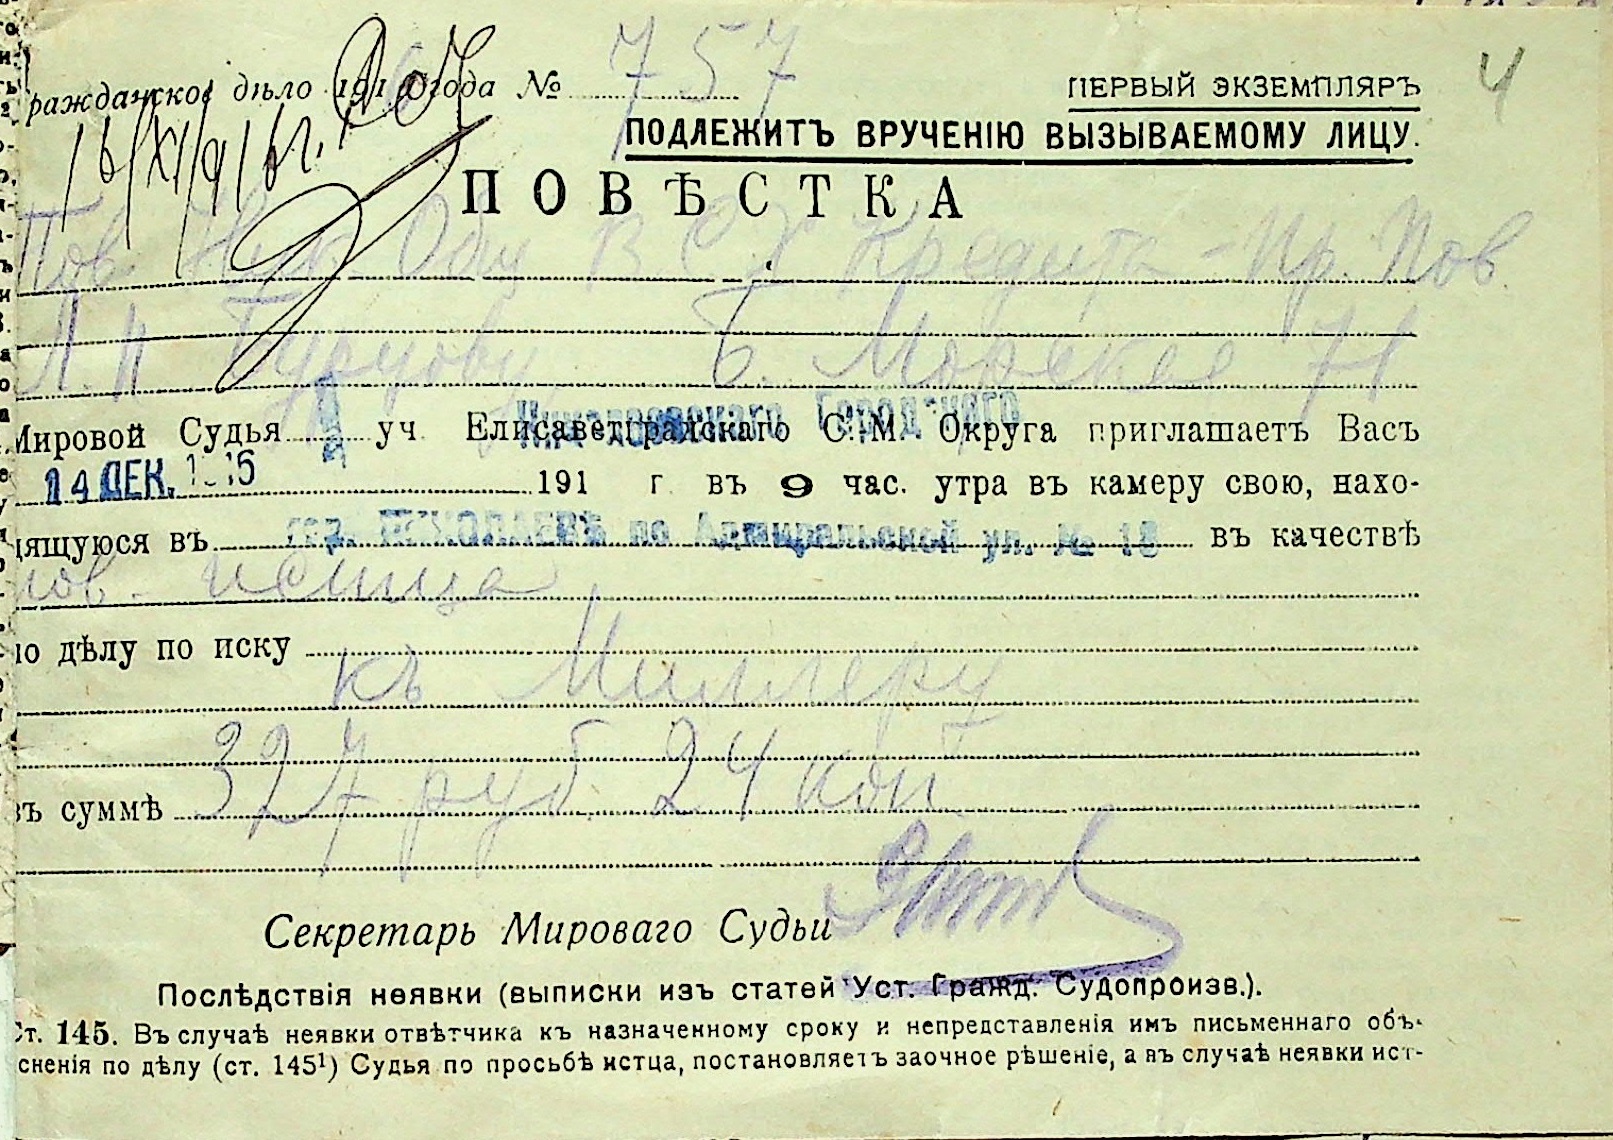 ражданское дѣло 191 года № 757
ПЕРВЫЙ ЭКЗЕМПЛЯРЪ
4
ПОДЛЕЖИТЪ ВРУЧЕНІЮ ВЫЗЫВАЕМОМУ ЛИЦУ.
16/XI/916г.
ПОВѢСТКА
Пов. Ник. Общ В Кредита - Пр. Пов.
Б. Морская 71
Мировой Судья уч Елисаветградскаго С. М. Округа приглашаетъ Васъ
Николаевскаго Городского
14 ДЕК. 191 г въ 9 час. утра въ камеру свою, нахо-
дящуюся въ гор. НИКОЛАЕВѢ по Адмиральской ул. № 18 въ качествѣ
пов. истца
по дѣлу по иску
къ Миллеру
въ суммѣ 327 руб. 24 коп
Секретарь Мироваго Судьи
Послѣдствія неявки (выписки изъ статей Уст. Гражд. Судопроизв.).
Ст. 145. Въ случаѣ неявки отвѣтчика къ назначенному сроку и непредставленія имъ письменнаго объ-
сненія по дѣлу (ст. 145¹) Судья по просьбѣ истца, постановляетъ заочное рѣшеніе, а въ случаѣ неявки ист-